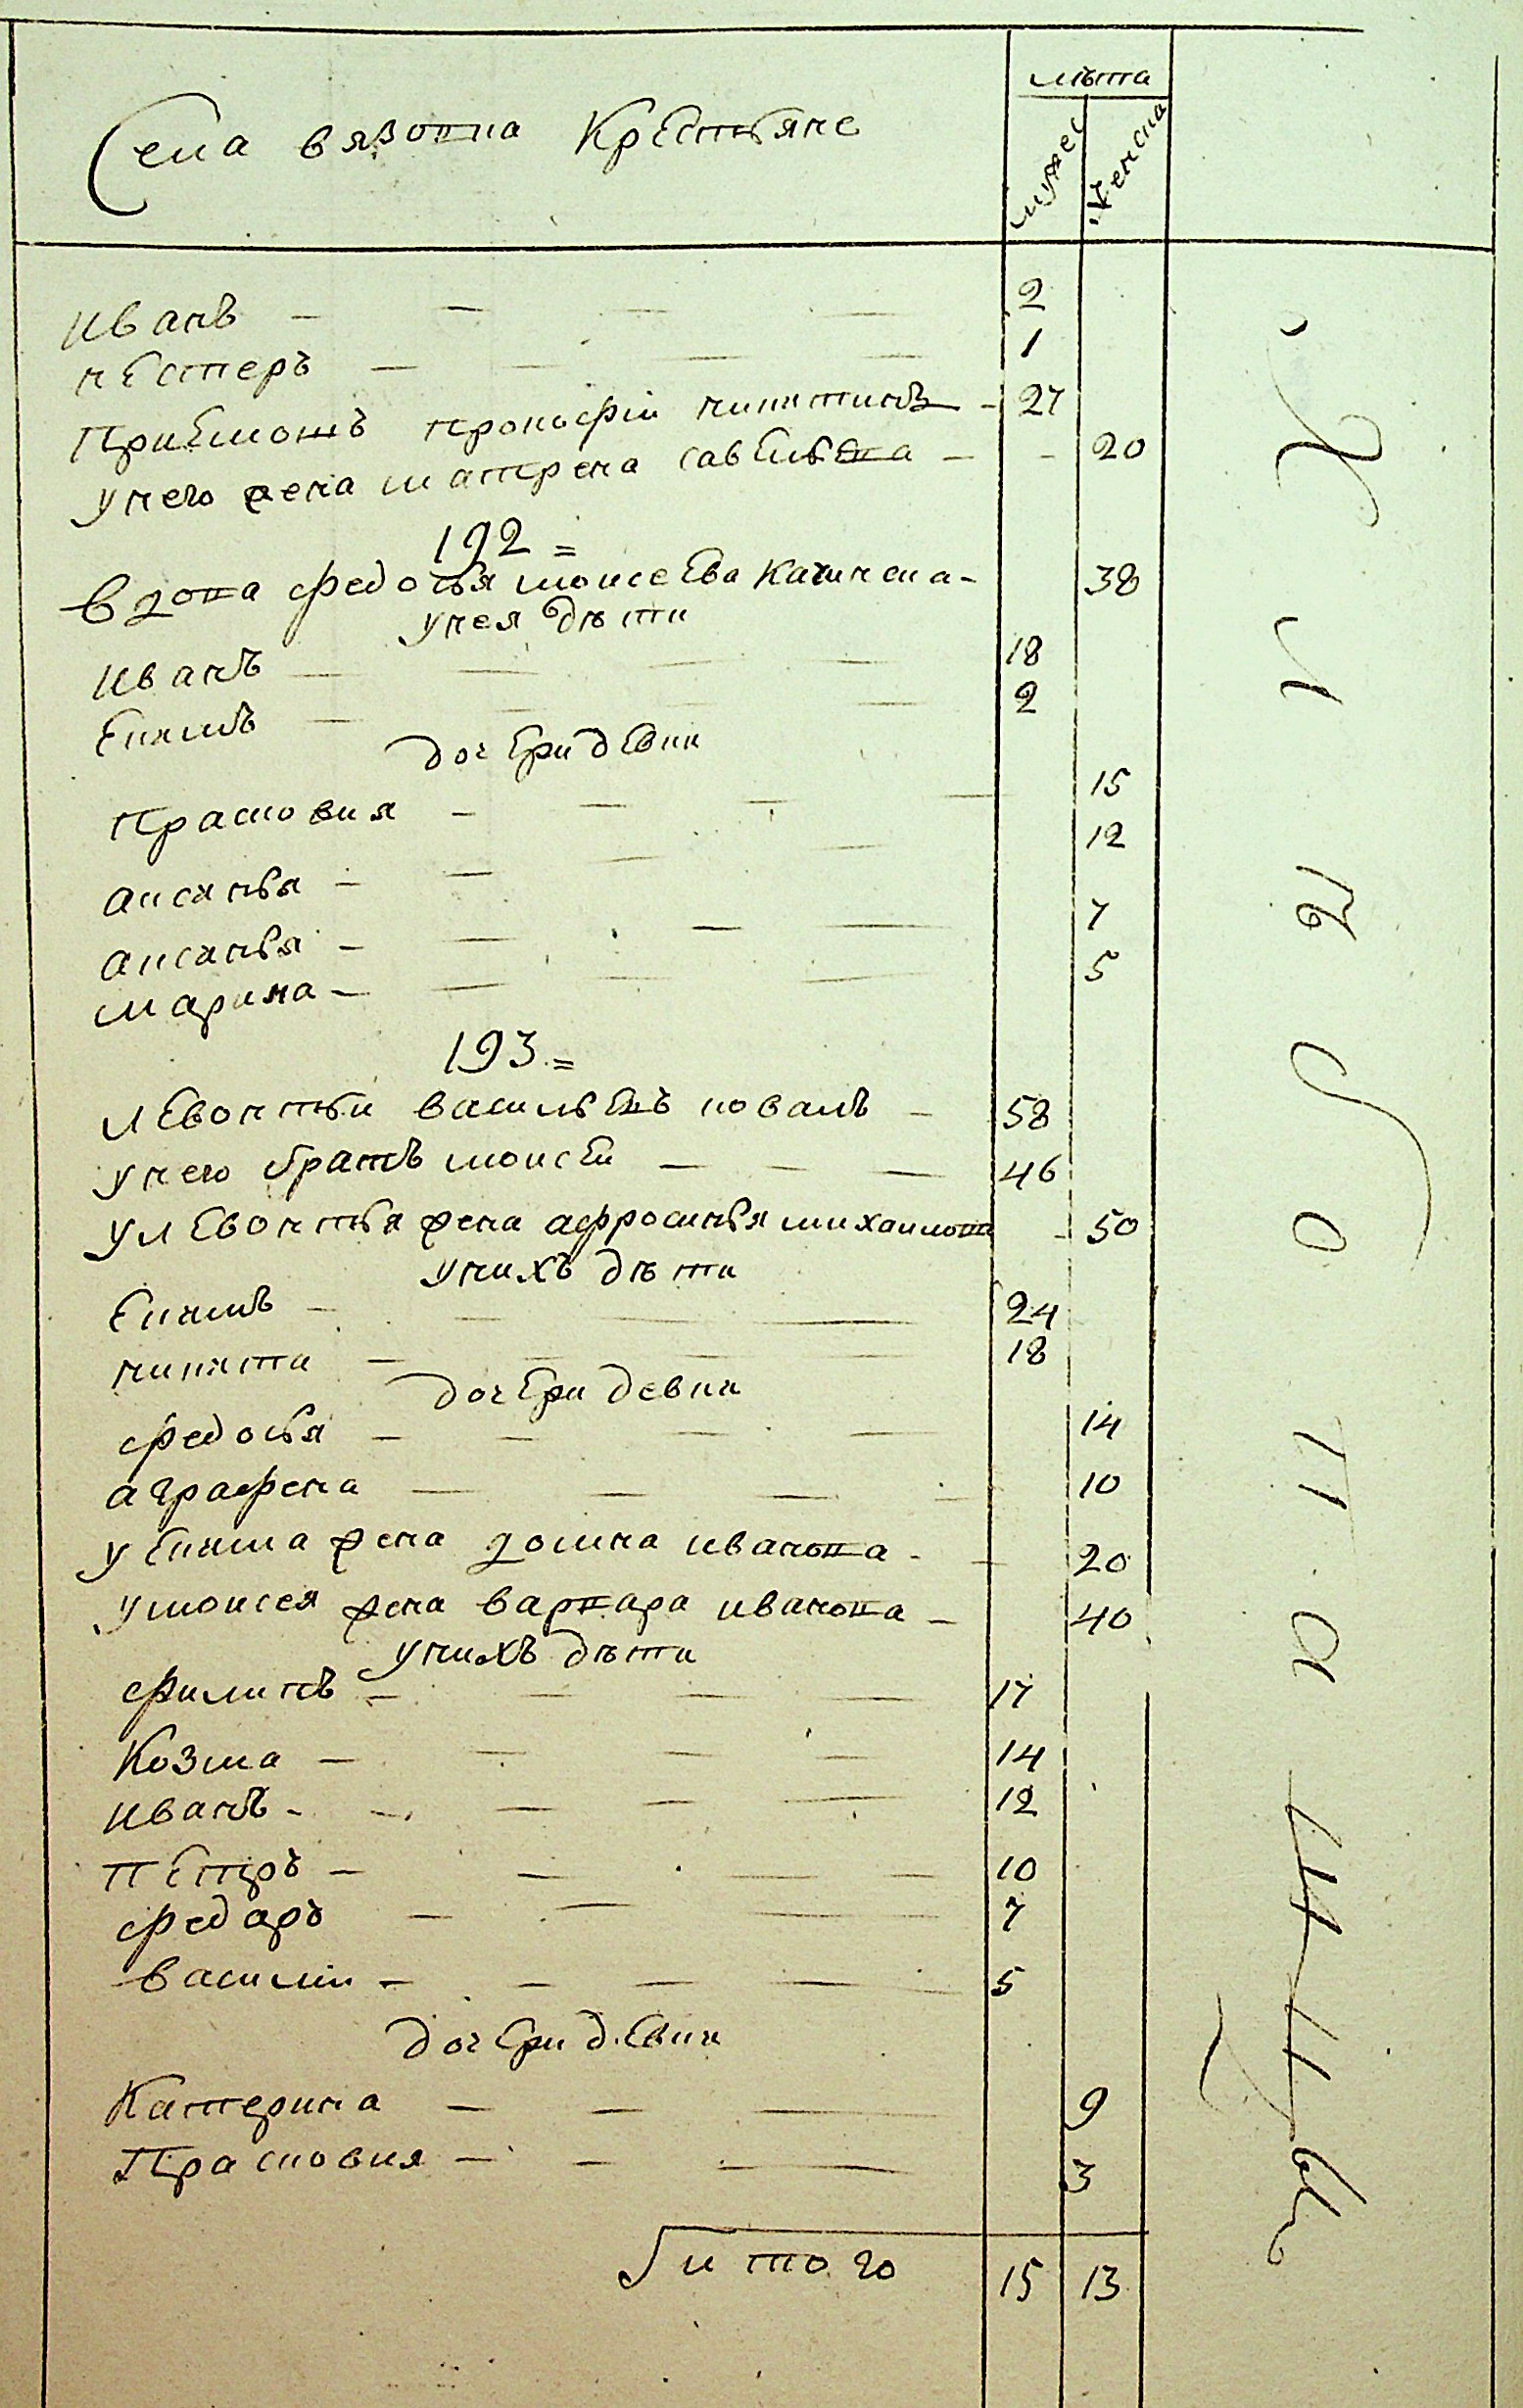 Села вязовка Крестьяне
лѣта
мужес
женска
иванъ 2
нестеръ 1
приемошъ прокофiи никитинъ 27
у него жена матрена савельева 20
192
вдова федосья моисеева
38
у нея дѣти
иванъ 18
екимъ 2
дочери девки
прасковия 15
аксинья 12
аксинья 7
марина 5
193
левонтьи васильевъ ковалъ 58
у него братъ моисеи 46
у левонтья жена афросинья михаилова 50
у нихъ дѣти
екимъ 24
никита 18
дочери девки
федосья 14
аграфена 10
у екима жена домна иванова 20
у моисея жена варвара иванова 40
у нихъ дѣти
филипъ 17
козма 14
иванъ 12
петръ 10
федаръ 7
василiи 5
дочери девки
катерина 9
прасковия 3
итого 15 13